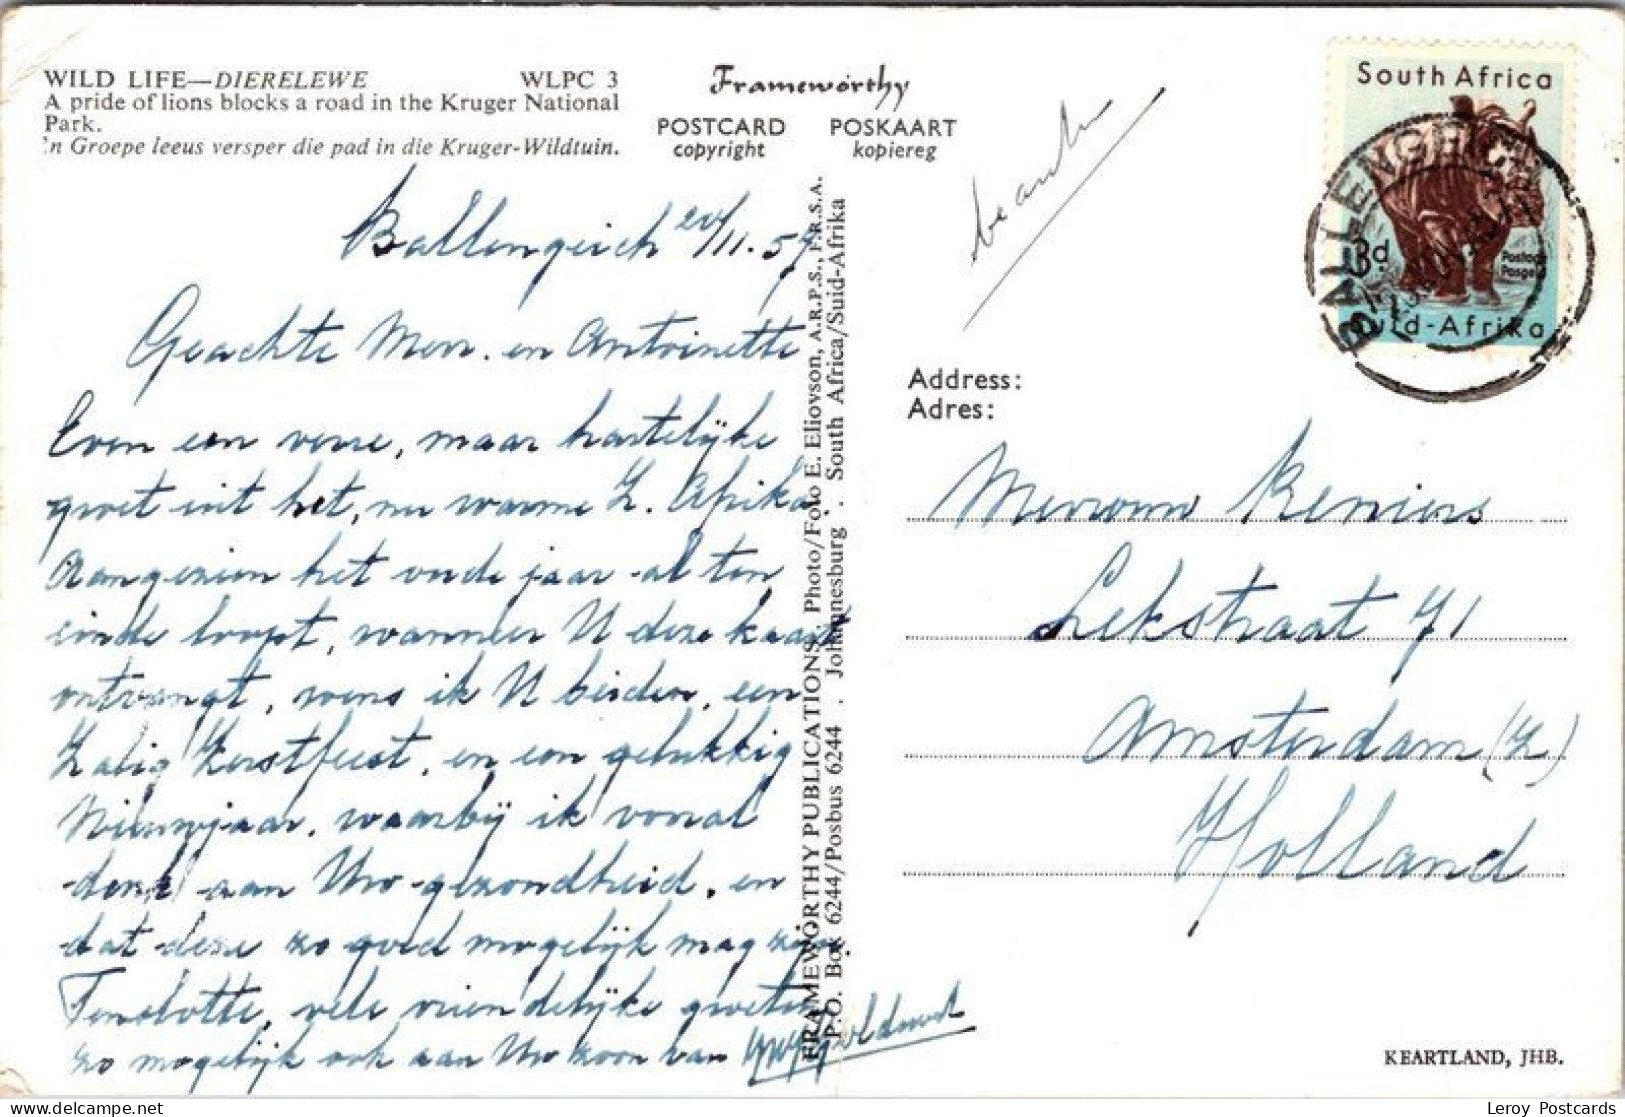 WILD LIFE—DIERELEWE WLPC 3
A pride of lions blocks a road in the Kruger National
Park.
'n Groepe leeus versper die pad in die Kruger-Wildtuin.
Frameworthy
POSTCARD POSKAART
copyright kopiereg
Ballengeich 20/11.57
Geachte Mevr. en Antoinette
Even een verre, maar hartelijke
groet uit het, nu warme Z. Afrika
Aangezien het oude jaar al ten
einde loopt, wanneer U deze kaart
ontvangt, wens ik U beiden, een
Zalig Kerstfeest, en een gelukkig
Nieuwjaar, waarbij ik vooral
denk aan Uw gezondheid, en
dat deze zo goed mogelijk mag zijn.
Tenslotte, vele vriendelijke groeten
zo mogelijk ook aan Uw zoon van
FRAMEWORTHY PUBLICATIONS. Photo/Foto E. Eliovson, A.R.P.S., F.R.S.A.
P.O. Box 6244/Posbus 6244 . Johannesburg . South Africa/Suid-Afrika
South Africa
3d
Postage
Posgeld
Suid-Afrika
BALLENGEICH
Address:
Adres:
Mevrouw Reniers
Lekstraat 71
Amsterdam (Z)
Holland
KEARTLAND, JHB.
Leroy Postcards